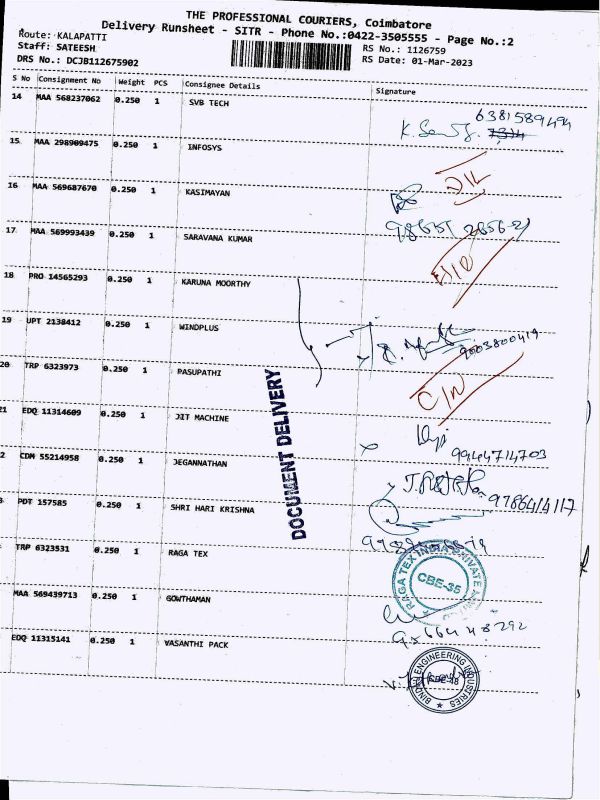 THE PROFESSIONAL COURIERS, Coimbatore
Delivery Runsheet - SITR - Phone No.:0422-3505555 - Page No.:2
Route: KALAPATTI
Staff: SATEESH
RS No.: 1126759
DRS No.: DCJB112675902
RS Date: 01-Mar-2023
S No Consignment No Weight PCS Consignee Details Signature
14 MAA 568237062 0.250 1 SVB TECH
6381589494
15 MAA 298909475 0.250 1 INFOSYS
DIL
16 MAA 569687670 0.250 1 KASIMAYAN
17 MAA 569993439 0.250 1 SARAVANA KUMAR
18 PRO 14565293 0.250 1 KARUNA MOORTHY
19 UPT 2138412 0.250 1 WINDPLUS
9003800419
20 TRP 6323973 0.250 1 PASUPATHI
C/N
21 EDQ 11314609 0.250 1 JIT MACHINE
9944714703
2 CDM 55214958 0.250 1 JEGANNATHAN
PDT 157585 0.250 1 SHRI HARI KRISHNA
DOCUMENT DELIVERY
TRP 6323531 0.250 1 RAGA TEX
RAGA TEX INDIA PRIVATE
CBE-35
MAA 569439713 0.250 1 GOWTHAMAN
EDQ 11315141 0.250 1 VASANTHI PACK
ENGINEERING INDUSTRIES